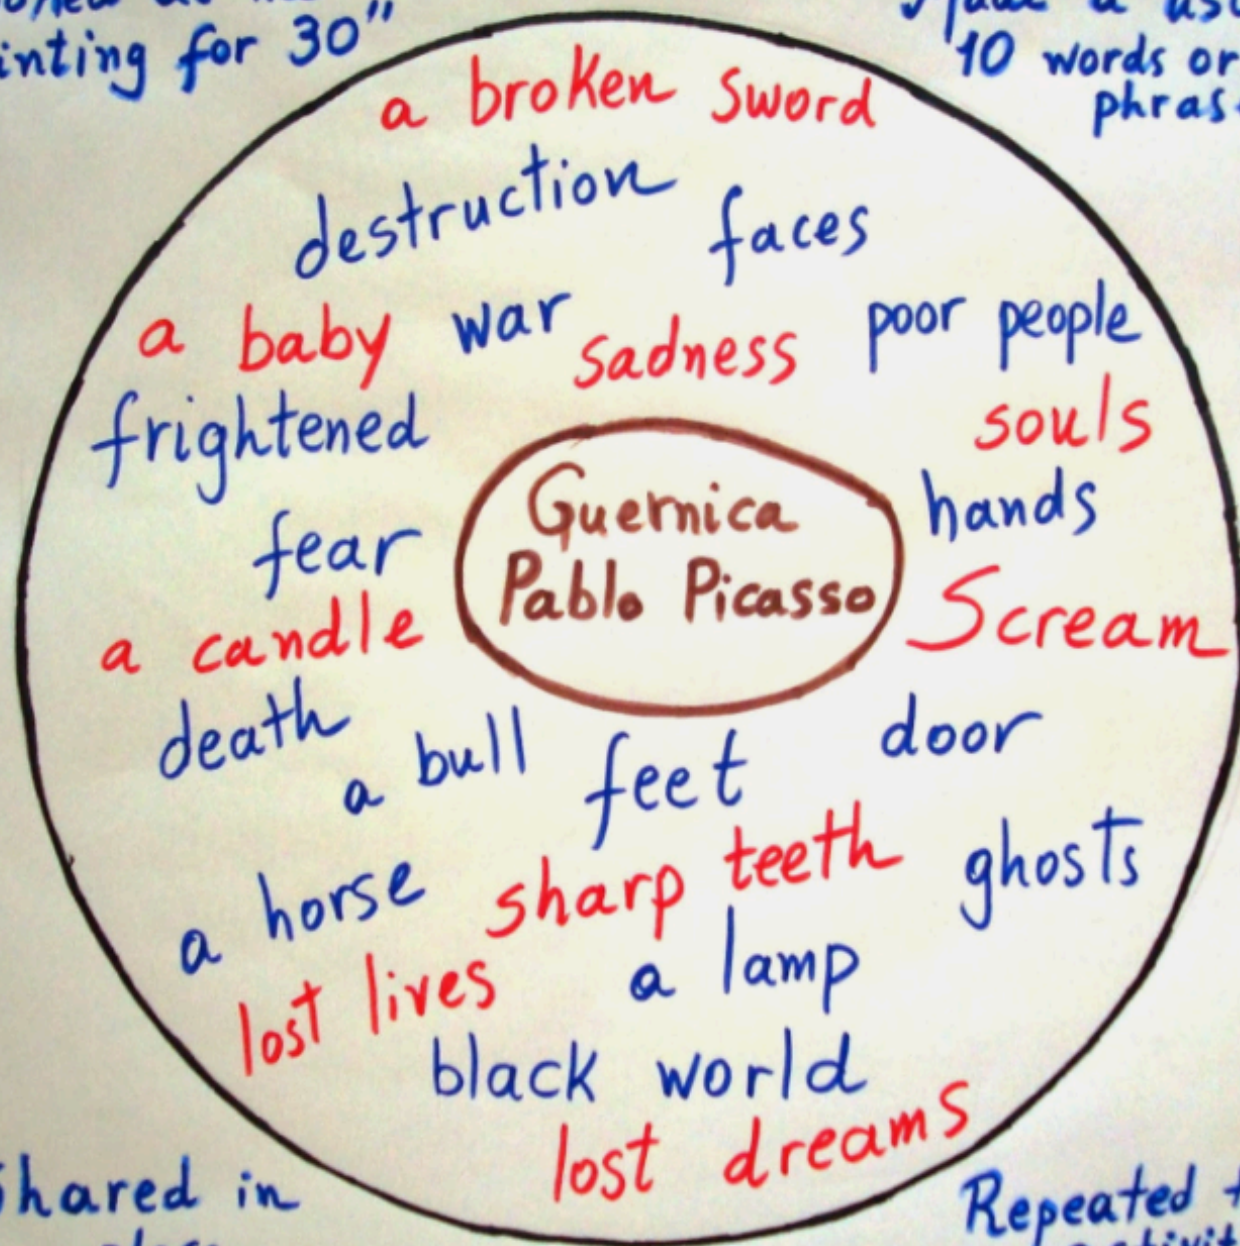 painting for 30"
10 words or
a broken sword
destruction
faces
a baby
war
sadness
poor people
frightened
souls
Guernica
Pablo Picasso
hands
fear
a candle
Scream
death
a bull
feet
door
a horse
sharp teeth
ghosts
lost lives
a lamp
black world
lost dreams
shared in
Repeated